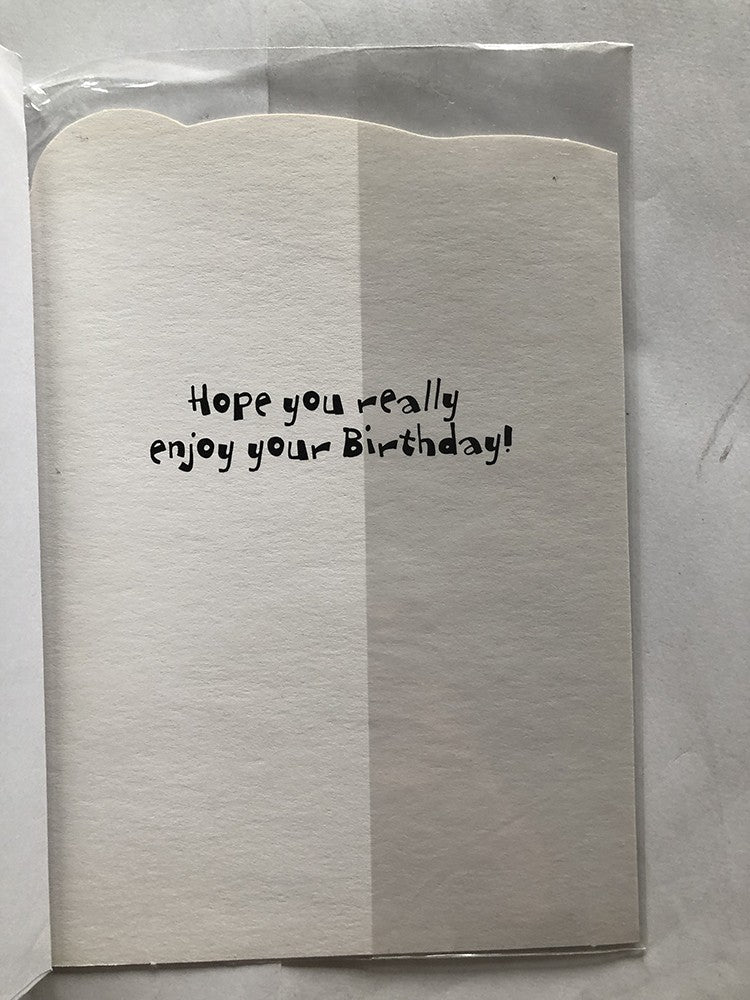 Hope you really
enjoy your Birthday!